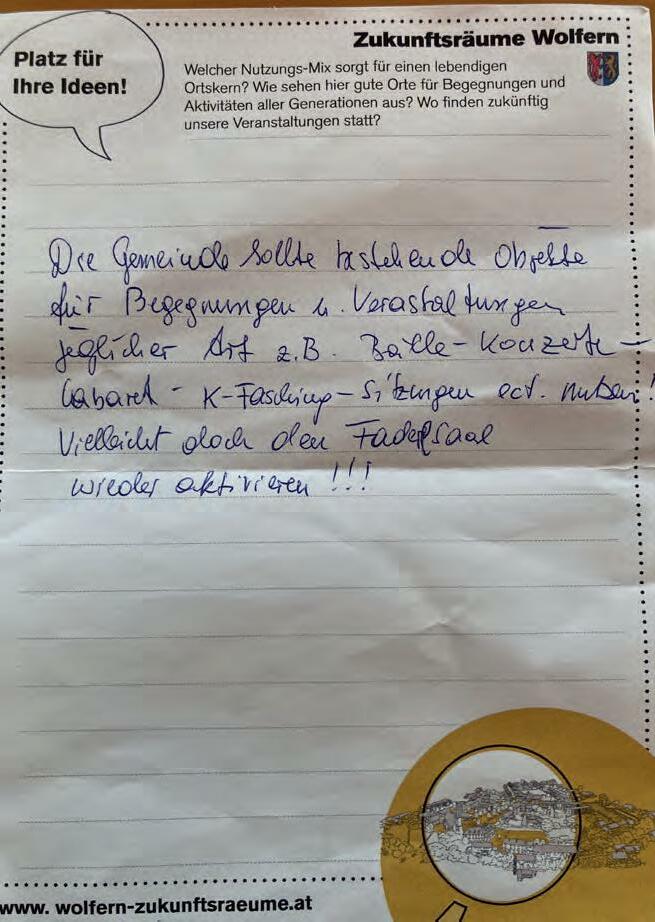 Platz für
Ihre Ideen!
Zukunftsräume Wolfern
Welcher Nutzungs-Mix sorgt für einen lebendigen
Ortskern? Wie sehen hier gute Orte für Begegnungen und
Aktivitäten aller Generationen aus? Wo finden zukünftig
unsere Veranstaltungen statt?
Die Gemeinde sollte bestehende Objekte
für Begegnungen u. Verastaltungen
jeglicher Art z.B. Bälle - Konzerte -
Cabaret - K-Fasching - Sitzungen ect. nutzen!
Vielleicht doch den
wieder aktivieren!!!
www. wolfern-zukunftsraeume.at